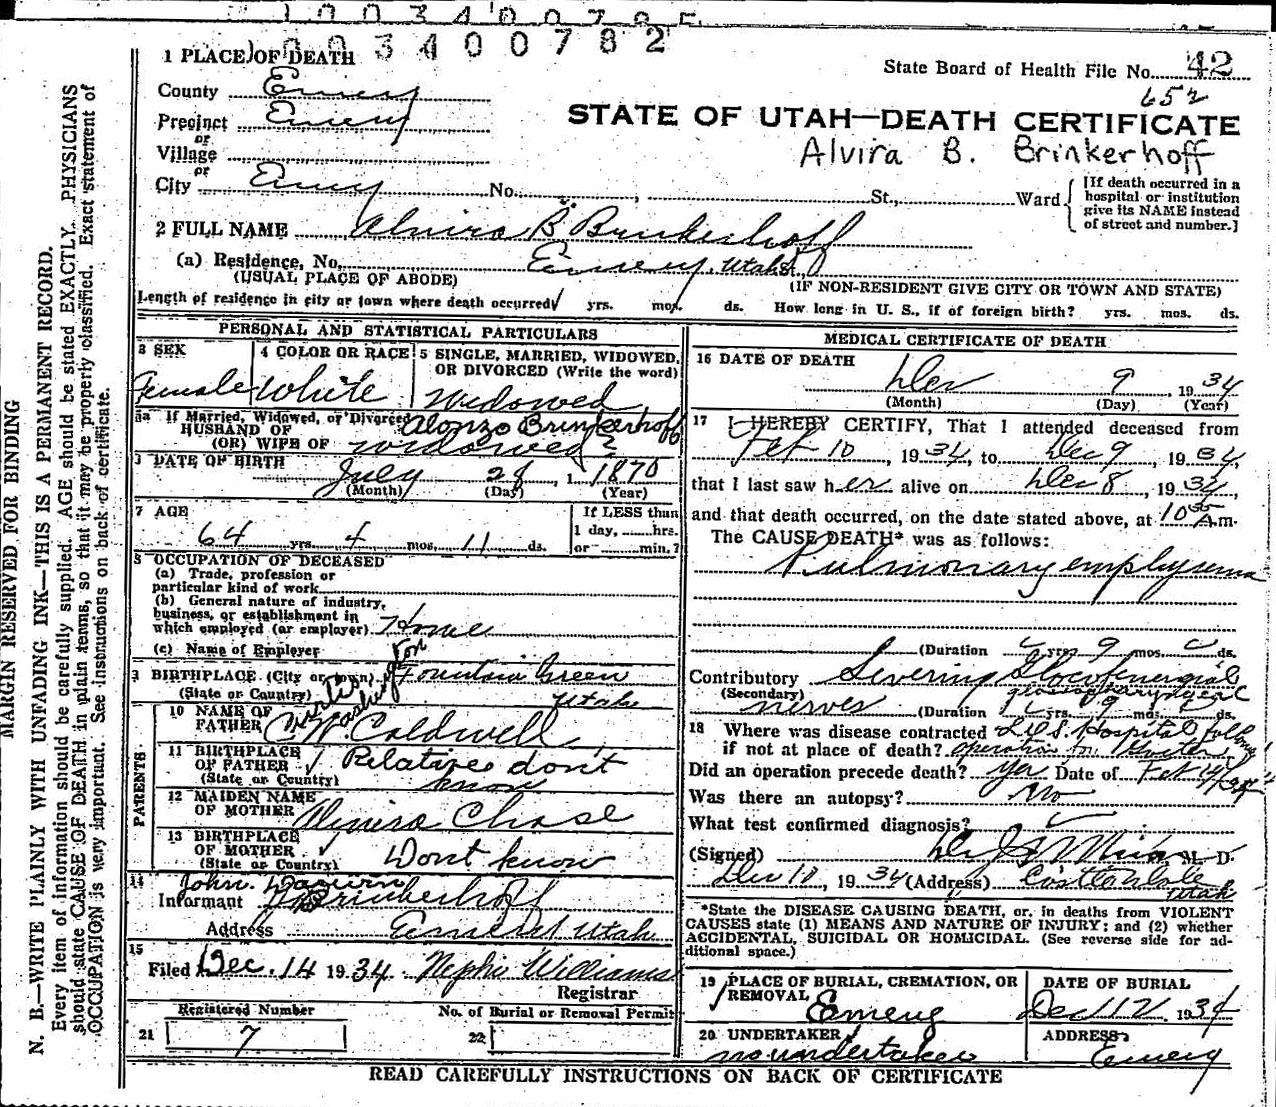 1003400782
1 PLACE OF DEATH
State Board of Health File No. 42
County Emery
652
Precinct Emery
STATE OF UTAH—DEATH CERTIFICATE
or
Village
Alvira B. Brinkerhoff
or
City Emery No. , St., Ward
[If death occurred in a
hospital or institution
give its NAME instead
of street and number.]
2 FULL NAME Alvira B. Brinkerhoff
(a) Residence, No. Emery, Utah
(USUAL PLACE OF ABODE) (IF NON-RESIDENT GIVE CITY OR TOWN AND STATE)
Length of residence in city or town where death occurred yrs. mos. ds. How long in U. S., if of foreign birth? yrs. mos. ds.
PERSONAL AND STATISTICAL PARTICULARS
3 SEX
Female
4 COLOR OR RACE
White
5 SINGLE, MARRIED, WIDOWED,
OR DIVORCED (Write the word)
Widowed
5a If Married, Widowed, or Divorced
HUSBAND OF Alonzo Brinkerhoff
(OR) WIFE OF widowed ?
DATE OF BIRTH
July 28, 1870
(Month) (Day) (Year)
7 AGE
64 yrs. 4 mos. 11 ds.
If LESS than
1 day, hrs.
or min.?
8 OCCUPATION OF DECEASED
(a) Trade, profession or
particular kind of work
(b) General nature of industry,
business, or establishment in
which employed (or employer) Home
(c) Name of Employer
9 BIRTHPLACE (City or town) Fountain Green
(State or Country) Utah
PARENTS
10 NAME OF
FATHER Curtis Washington
W. Caldwell
11 BIRTHPLACE
OF FATHER Relatives don't
(State or Country) know
12 MAIDEN NAME
OF MOTHER Almira Chase
13 BIRTHPLACE
OF MOTHER Dont know
(State or Country)
14 John
Informant Brinkerhoff
Address Emery Utah
15
Filed Dec. 14 1934 Nephi Williams
Registrar
Registered Number
21 7
No. of Burial or Removal Permit
22
MEDICAL CERTIFICATE OF DEATH
16 DATE OF DEATH
Dec 9 1934
(Month) (Day) (Year)
17 I HEREBY CERTIFY, That I attended deceased from
Feb 10, 1934, to Dec 9, 1934,
that I last saw her alive on Dec 8, 1934,
and that death occurred, on the date stated above, at 10 A m.
The CAUSE DEATH* was as follows:
Pulmonary emphysema
(Duration yrs. 9 mos. ds.
Contributory Severing
(Secondary) glossopharyngeal
nerves (Duration yrs. 9 mos. ds.
18 Where was disease contracted L.D.S. Hospital following
if not at place of death? operation for Goiter
Did an operation precede death? yes Date of Feb
Was there an autopsy? No
What test confirmed diagnosis?
(Signed) M. D.
Dec 10, 1934 (Address) Castle Dale
Utah
*State the DISEASE CAUSING DEATH, or, in deaths from VIOLENT
CAUSES state (1) MEANS AND NATURE OF INJURY; and (2) whether
ACCIDENTAL, SUICIDAL OR HOMICIDAL. (See reverse side for ad-
ditional space.)
19 PLACE OF BURIAL, CREMATION, OR
REMOVAL Emery
DATE OF BURIAL
Dec 12, 1934
20 UNDERTAKER
no undertaker
ADDRESS
Emery
READ CAREFULLY INSTRUCTIONS ON BACK OF CERTIFICATE
MARGIN RESERVED FOR BINDING
N. B.—WRITE PLAINLY WITH UNFADING INK—THIS IS A PERMANENT RECORD.
Every item of information should be carefully supplied. AGE should be stated EXACTLY. PHYSICIANS
should state CAUSE OF DEATH in plain terms, so that it may be properly classified. Exact statement of
OCCUPATION is very important. See instructions on back of certificate.